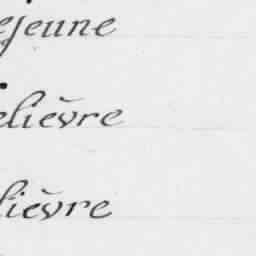 ejeune
elièvre
lièvre